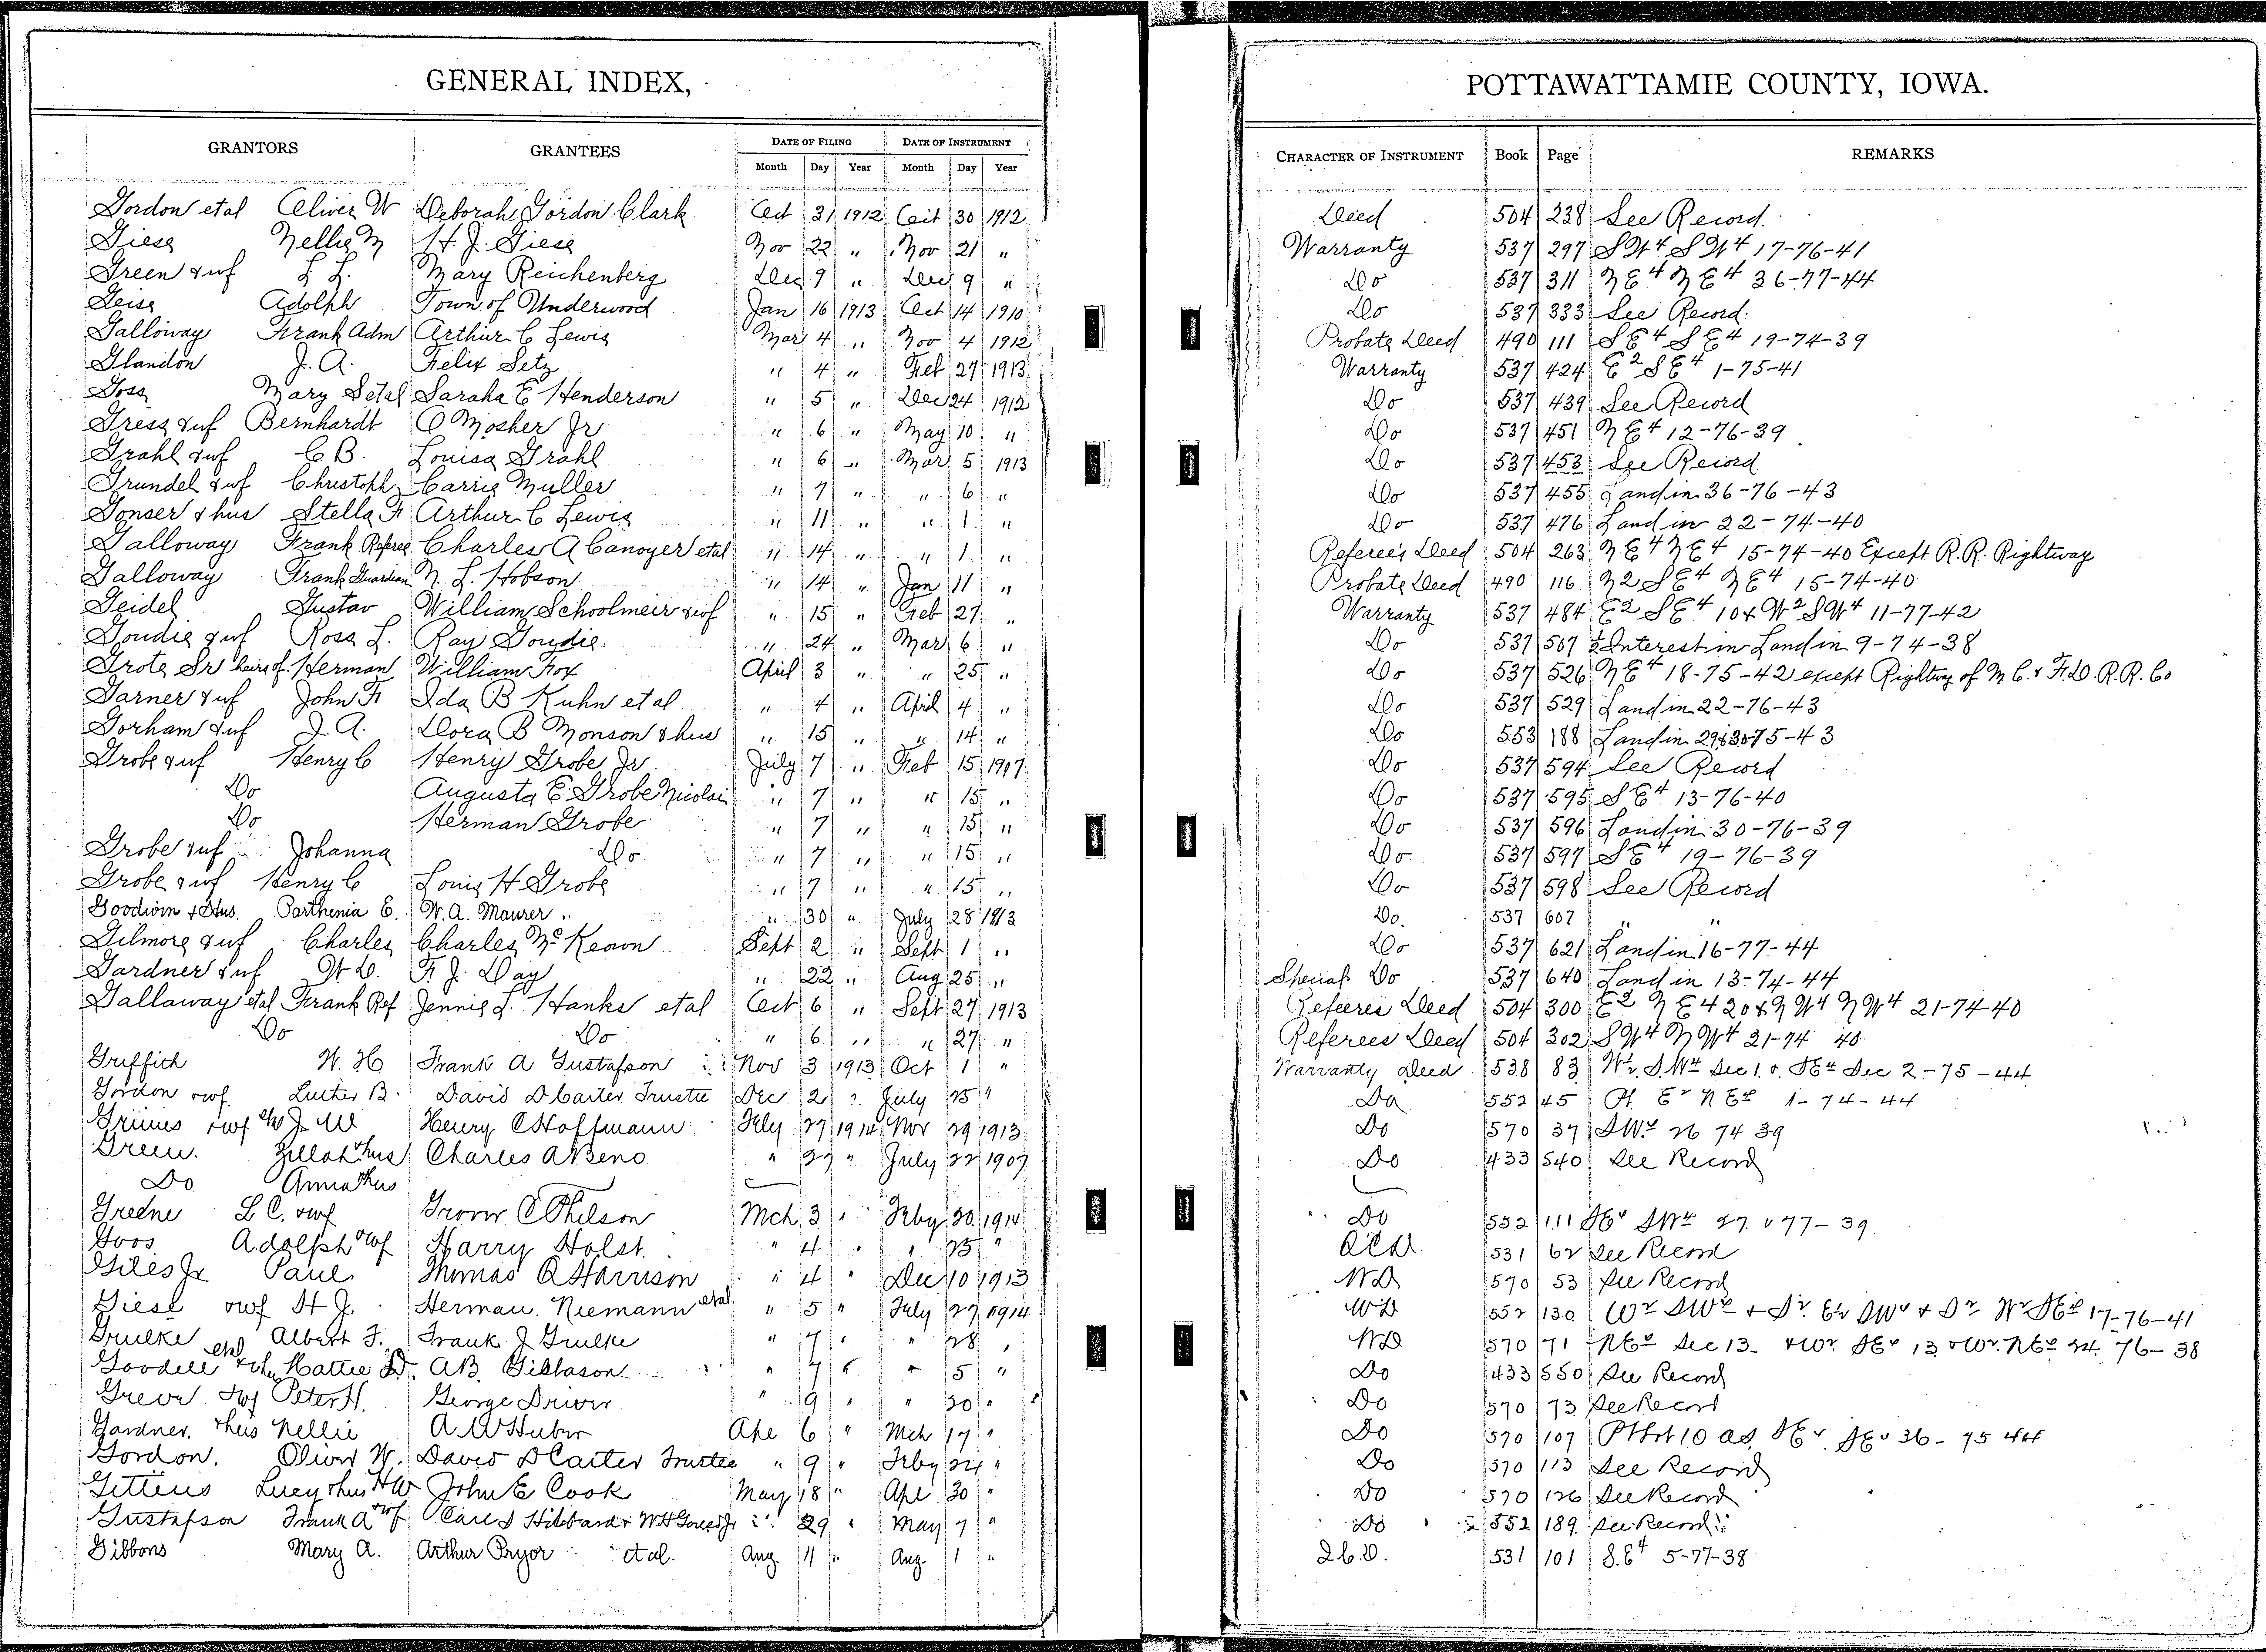 GENERAL INDEX,
GRANTORS GRANTEES DATE OF FILING DATE OF INSTRUMENT
Month Day Year Month Day Year
Gordon etal Oliver W Deborah Gordon Clark Oct 31 1912 Oct 30 1912
Giese Nellie M H. J. Giese Nov 22 " Nov 21 "
Green & wf L L. Mary Reichenberg Dec 9 " Dec 9 "
Geise Adolph Town of Underwood Jan 16 1913 Oct 14 1910
Galloway Frank Adm Arthur C Lewis Mar 4 " Nov 4 1912
Glandon J. A. Felix Setz " 4 " Feb 27 1913
Goss Mary S etal Sarah E Henderson " 5 " Dec 24 1912
Gress & wf Bernhardt O Mosher Jr " 6 " May 10 "
Grahl & wf C B. Louisa Grahl " 6 " Mar 5 1913
Grundel & wf Christoph Carrie Muller " 7 " " 6 "
Gonser & hus Stella F Arthur C Lewis " 11 " " 1 "
Galloway Frank Referee Charles A Canoyer etal " 14 " " 1 "
Galloway Frank Guardian N. L. Hobson " 14 " Jan 11 "
Geidel Gustav William Schoolmeir & wf " 15 " Feb 27 "
Goudie & wf Ross L. Ray Goudie " 24 " Mar 6 "
Grote Sr heirs of Herman William Fox April 3 " " 25 "
Garner & wf John F Ida B Kuhn et al " 4 " April 4 "
Gorham & wf J. A. Dora B Monson & hus " 15 " " 14 "
Grobe & wf Henry C Henry Grobe Jr July 7 " Feb 15 1907
Do Augusta E Grobe Nicolai " 7 " " 15 "
Do Herman Grobe " 7 " " 15 "
Grobe & wf Johanna Do " 7 " " 15 "
Grobe & wf Henry C Louis H Grobe " 7 " " 15 "
Goodwin & Hus. Parthenia E. W. A. Maurer " 30 " July 28 1913
Gilmore & wf Charles Charles McKeown Sept 2 " Sept 1 "
Gardner & wf W D. F. J. Day " 22 " Aug 25 "
Gallaway etal Frank Ref Jennie L. Hanks et al Oct 6 " Sept 27 1913
Do Do " 6 " " 27 "
Griffith W. H. Frank A Gustafson Nov 3 1913 Oct 1 "
Gordon & wf. Luther B. David D Carter Trustee Dec 2 " July 25 "
Grimes & wf J. W Henry C Hoffmann Feby 27 1914 Nov 29 1913
Green. Zillah & hus Charles A Beno " 27 " July 22 1907
Do Anna & hus
Greene L C. & wf Grover C Philson Mch 3 " Feby 20 1914
Goos Adolph & wf Harry Holst. " 4 " " 25 "
Giles Jr Paul Thomas Q Harrison " 4 " Dec 10 1913
Giese & wf H J. Herman Niemann etal " 5 " Feby 27 1914
Grulke Albert F. Frank J Grulke " 7 " " 28 "
Goodell etal Hattie D. A B. " 7 " " 5 "
Greve & wf Peter H. George Driver " 9 " " 20 "
Gardner. & hus Nellie A W Huber Apr 6 " Mch 17 "
Gordon. Oliver W. David D Carter Trustee " 9 " Feby 24 "
Gittins Lucy & hus H W John E Cook May 18 " Apr 30 "
Gustafson Frank A & wf Hibbard & W H " 29 " May 7 "
Gibbons Mary A. Arthur Pryor et al. Aug. 11 " Aug. 1 "
POTTAWATTAMIE COUNTY, IOWA.
CHARACTER OF INSTRUMENT Book Page REMARKS
Deed 504 238 See Record.
Warranty 537 297 SW4 SW4 17-76-41
Do 537 311 NE4 NE4 36-77-44
Do 537 333 See Record.
Probate Deed 490 111 SE4 SE4 19-74-39
Warranty 537 424 E2 SE4 1-75-41
Do 537 439 See Record
Do 537 451 NE4 12-76-39
Do 537 453 See Record
Do 537 455 Land in 36-76-43
Do 537 476 Land in 22-74-40
Referee's Deed 504 263 NE4 NE4 15-74-40 Except R.R. Rightway
Probate Deed 490 116 N2 SE4 NE4 15-74-40
Warranty 537 484 E2 SE4 10 & W2 SW4 11-77-42
Do 537 507 ½ Interest in Land in 9-74-38
Do 537 526 NE4 18-75-42 except Rightway of M. C. & F. D. R.R. Co
Do 537 529 Land in 22-76-43
Do 553 188 Land in 29 & 30-75-43
Do 537 594 See Record
Do 537 595 SE4 13-76-40
Do 537 596 Land in 30-76-39
Do 537 597 SE4 19-76-39
Do 537 598 See Record
Do. 537 607 " "
Do 537 621 Land in 16-77-44
Special Do 537 640 Land in 13-74-44
Referees Deed 504 300 E2 NE4 20 & NW4 NW4 21-74-40
Referees Deed 504 302 SW4 NW4 21-74 40
Warranty Deed 538 83 W½ SW4 Sec 1. & SE4 Sec 2-75-44
Do 552 45 Pt. E½ NE4 1-74-44
Do 570 37 SW4 26 74 39
Do 433 540 See Record
Do 552 111 SE4 SW4 27 77-39
QCD. 531 62 See Record
WD 570 53 See Record
WD 552 130 W½ SW4 + S½ E½ SW4 & S½ W½ SE4 17-76-41
WD 570 71 NE4 Sec 13. & W½ SE4 13 & W½ NE4 24. 76-38
Do 433 550 See Record
Do 570 73 See Record
Do 570 107 SE4 SE4 36-75 44
Do 570 113 See Record
Do 570 126 See Record
Do 552 189 See Record
Q.C.D. 531 101 S.E4 5-77-38